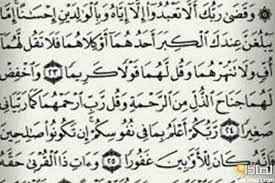 وَقَضَىٰ رَبُّكَ أَلَّا تَعْبُدُوٓا۟ إِلَّآ إِيَّاهُ وَبِٱلْوَٰلِدَيْنِ إِحْسَٰنًا إِمَّا
يَبْلُغَنَّ عِندَكَ ٱلْكِبَرَ أَحَدُهُمَآ أَوْ كِلَاهُمَا فَلَا تَقُل لَّهُمَآ
أُفٍّ وَلَا تَنْهَرْهُمَا وَقُل لَّهُمَا قَوْلًا كَرِيمًا ٢٣ وَٱخْفِضْ
لَهُمَا جَنَاحَ ٱلذُّلِّ مِنَ ٱلرَّحْمَةِ وَقُل رَّبِّ ٱرْحَمْهُمَا كَمَا رَبَّيَانِى
صَغِيرًا ٢٤ رَّبُّكُمْ أَعْلَمُ بِمَا فِى نُفُوسِكُمْ إِن تَكُونُوا۟ صَٰلِحِينَ
فَإِنَّهُۥ كَانَ لِلْأَوَّٰبِينَ غَفُورًا ٢٥ وَءَاتِ ذَا ٱلْقُرْبَىٰ حَقَّهُۥ
لماذا